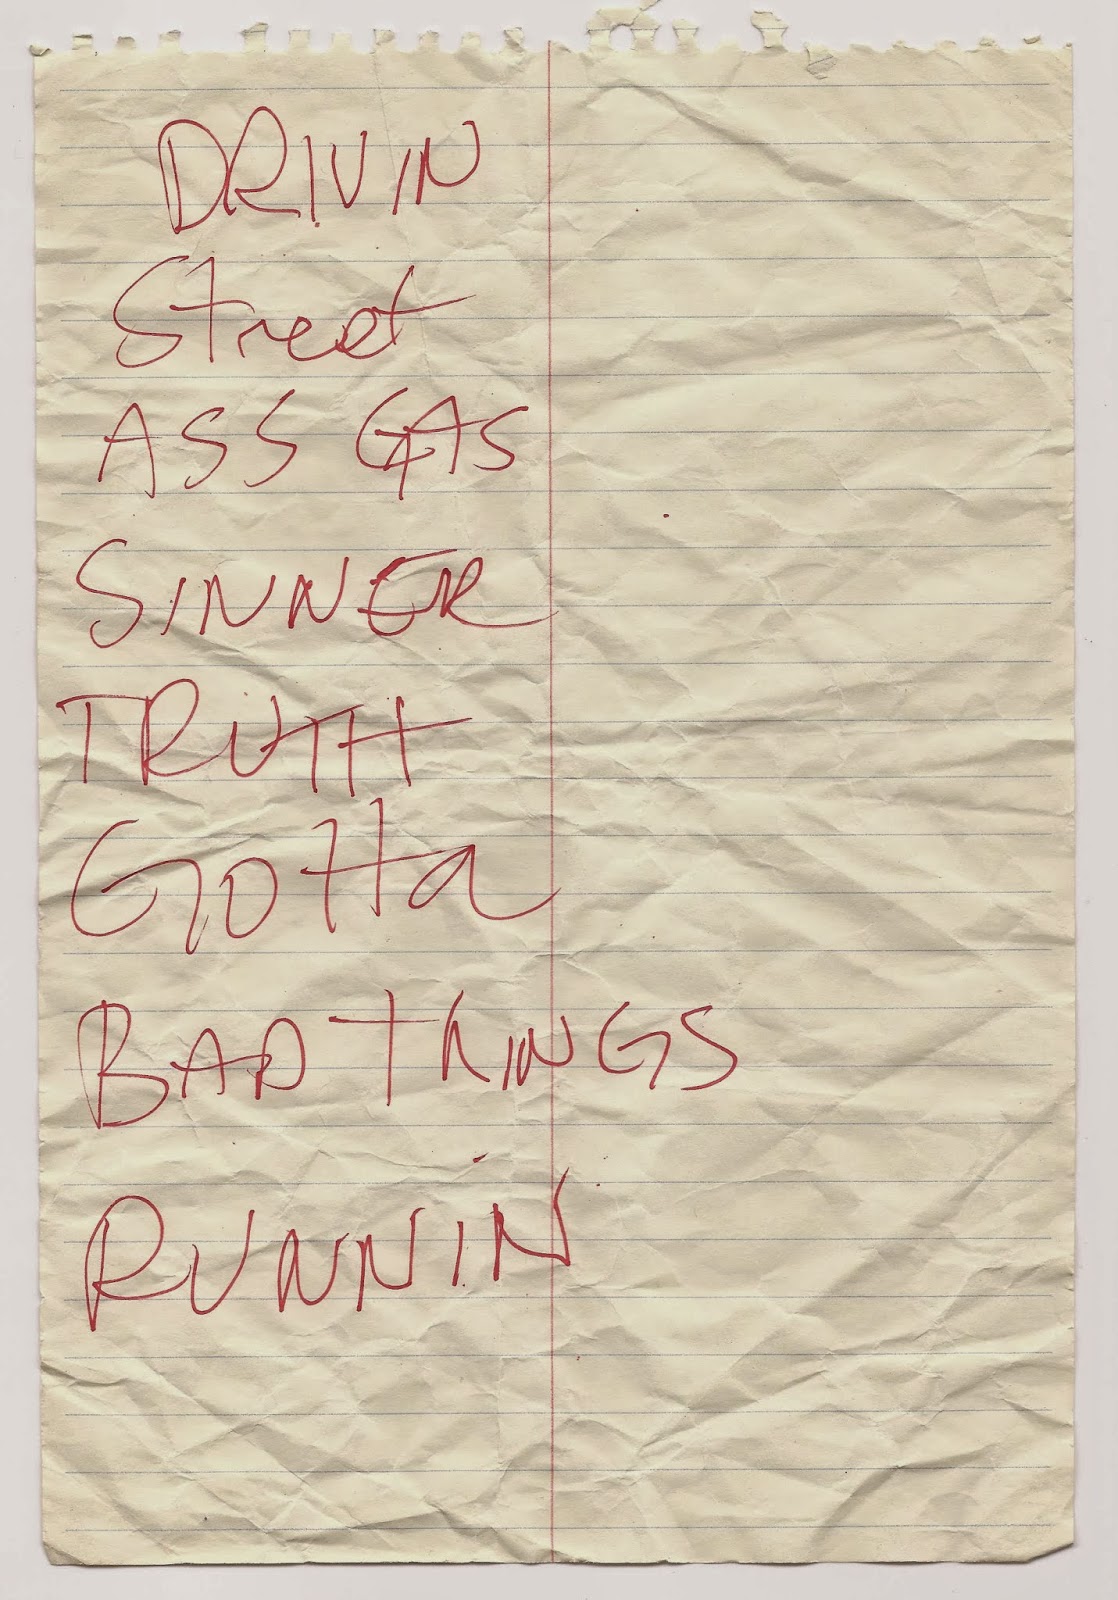 DRIVIN
Street
ASS GAS
SINNER
TRUTH
GOtta
BAD THINGS
RUNNIN